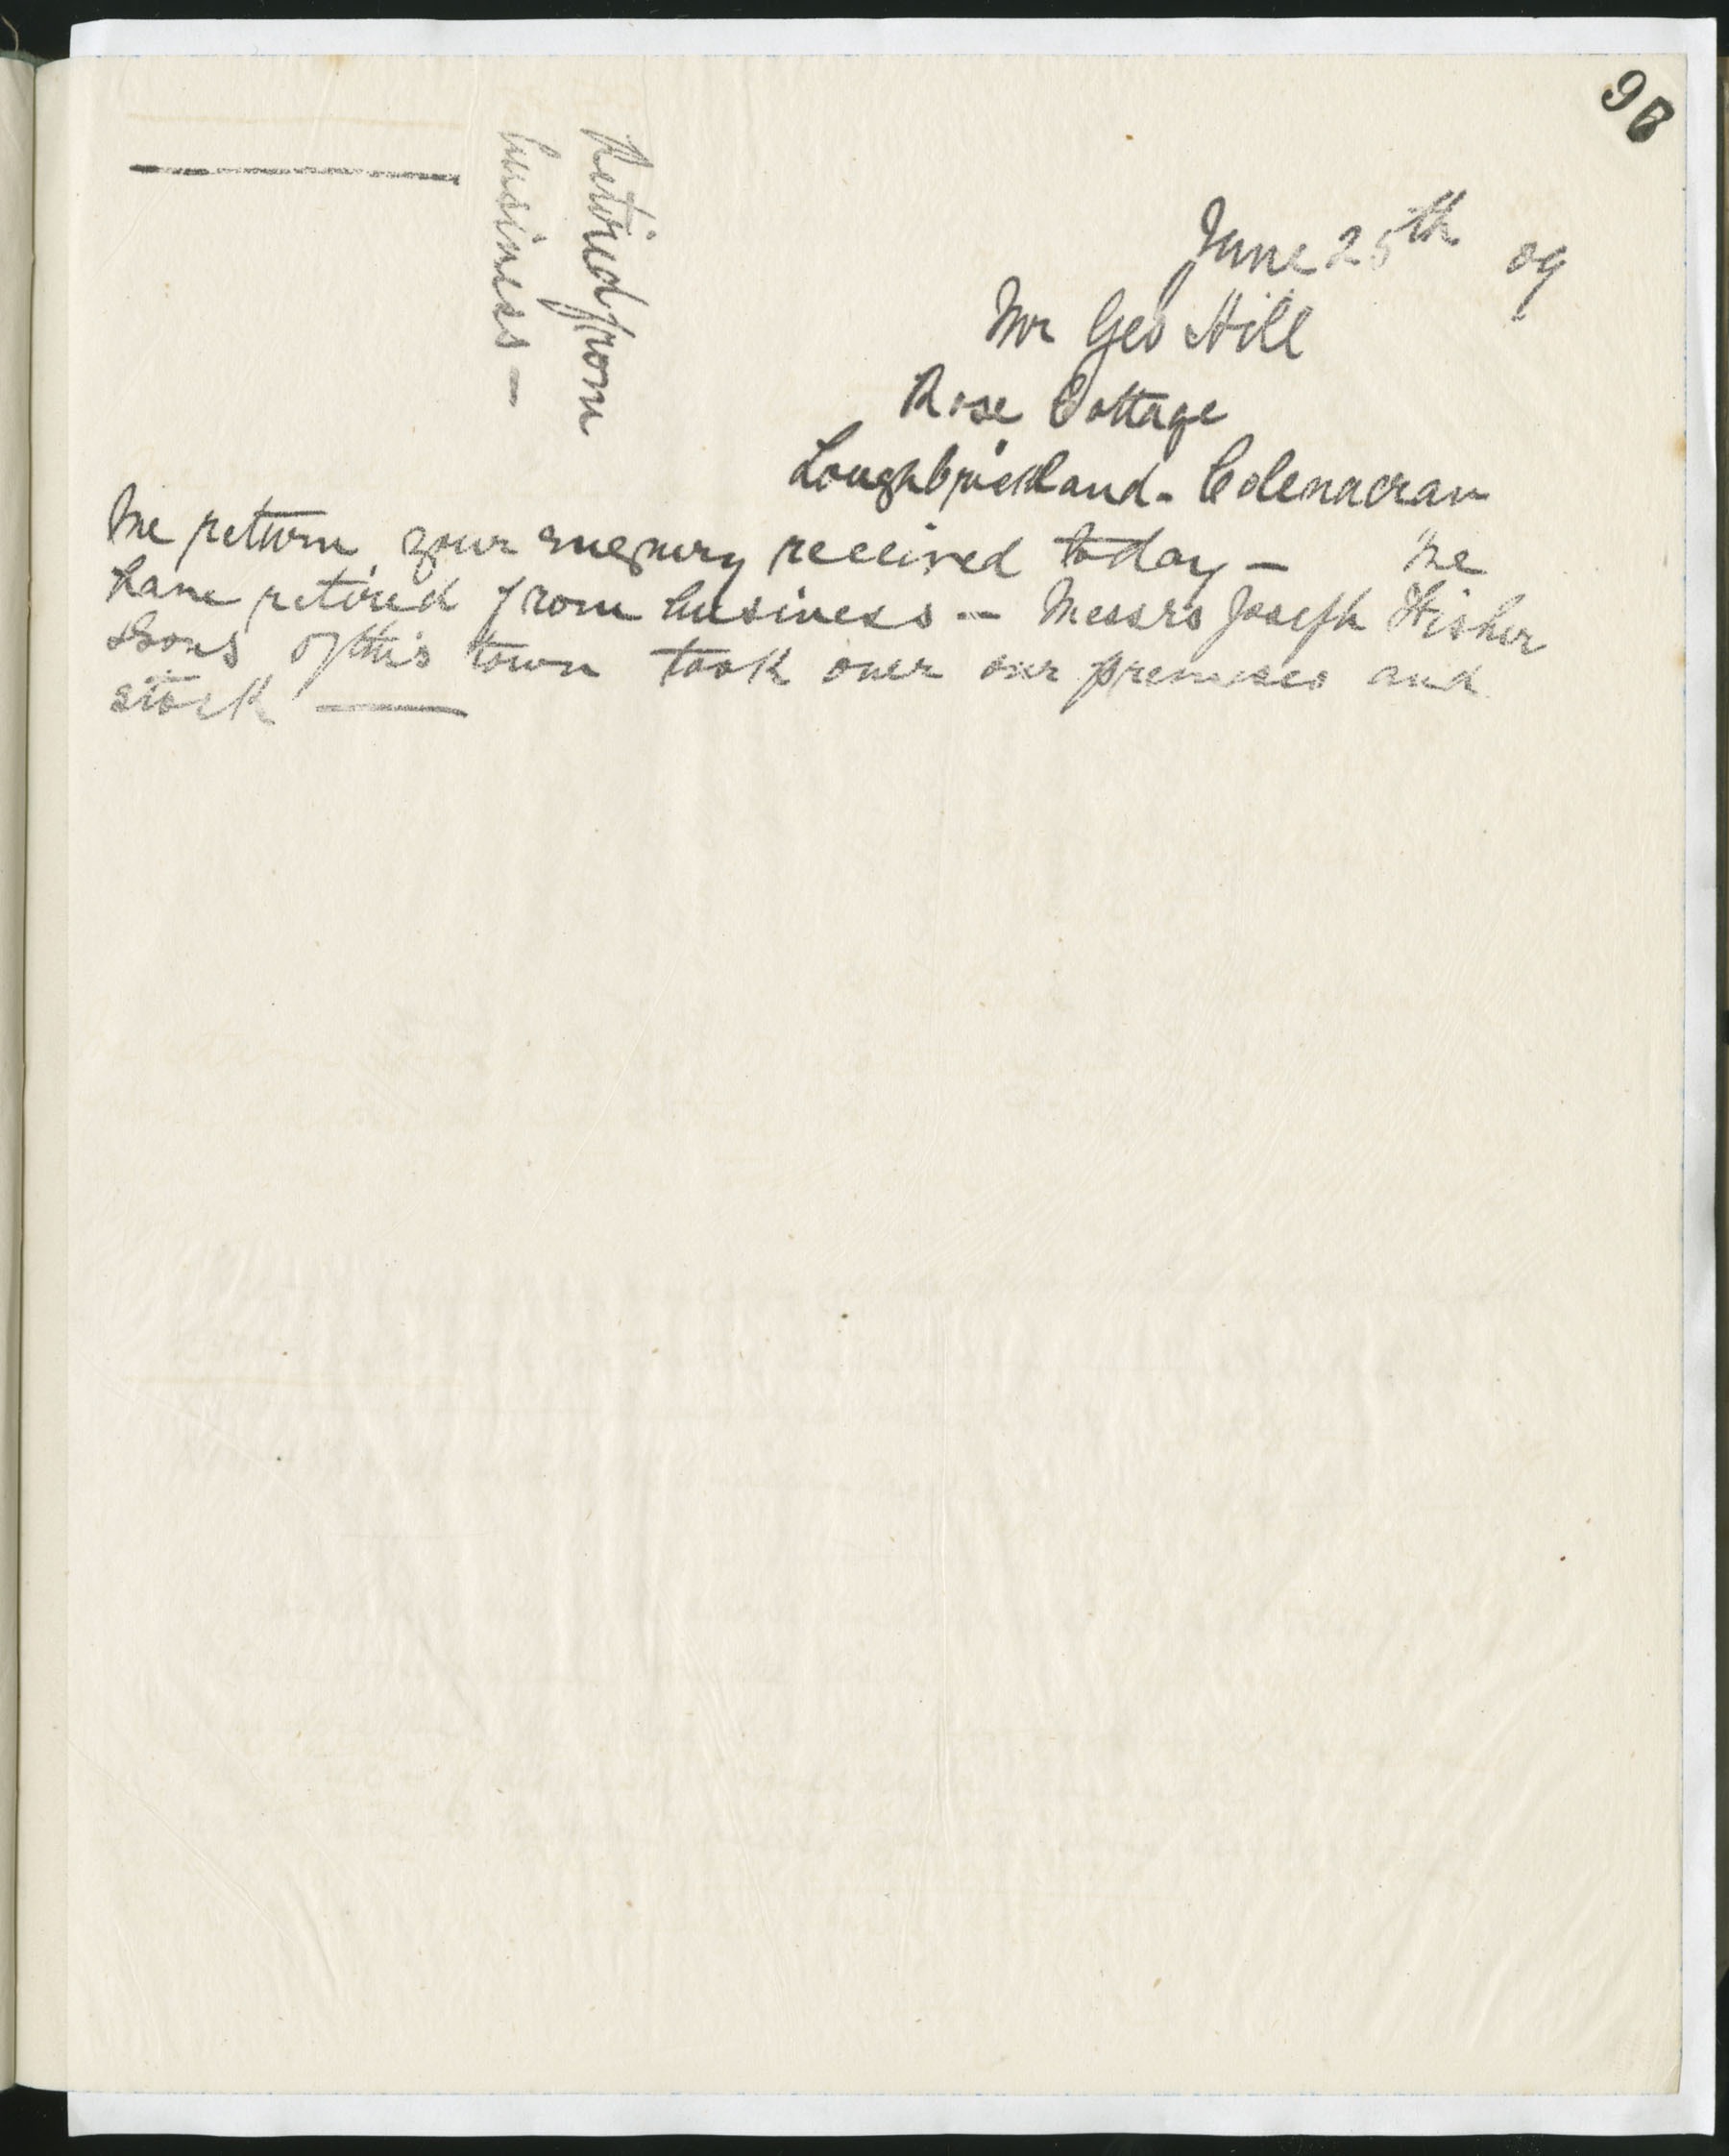 98
Retired from
business –
June 25th 09
Mr Geo Hill
Rose Cottage
Loughbrickland - Colenacran
We return your enquiry received today – We
have retired from business – Messrs Joseph Fisher
& Sons of this town took over our premises and
stock —